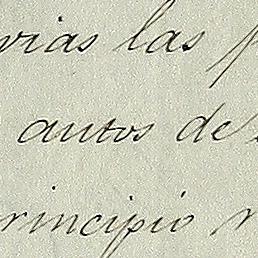 vias las p
autos de
rincipio